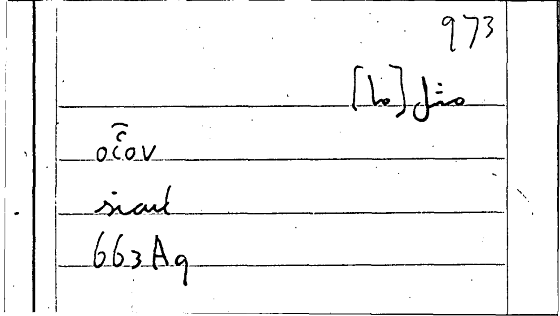 973
مثل [ما]
οἷον
sicut
663 A9